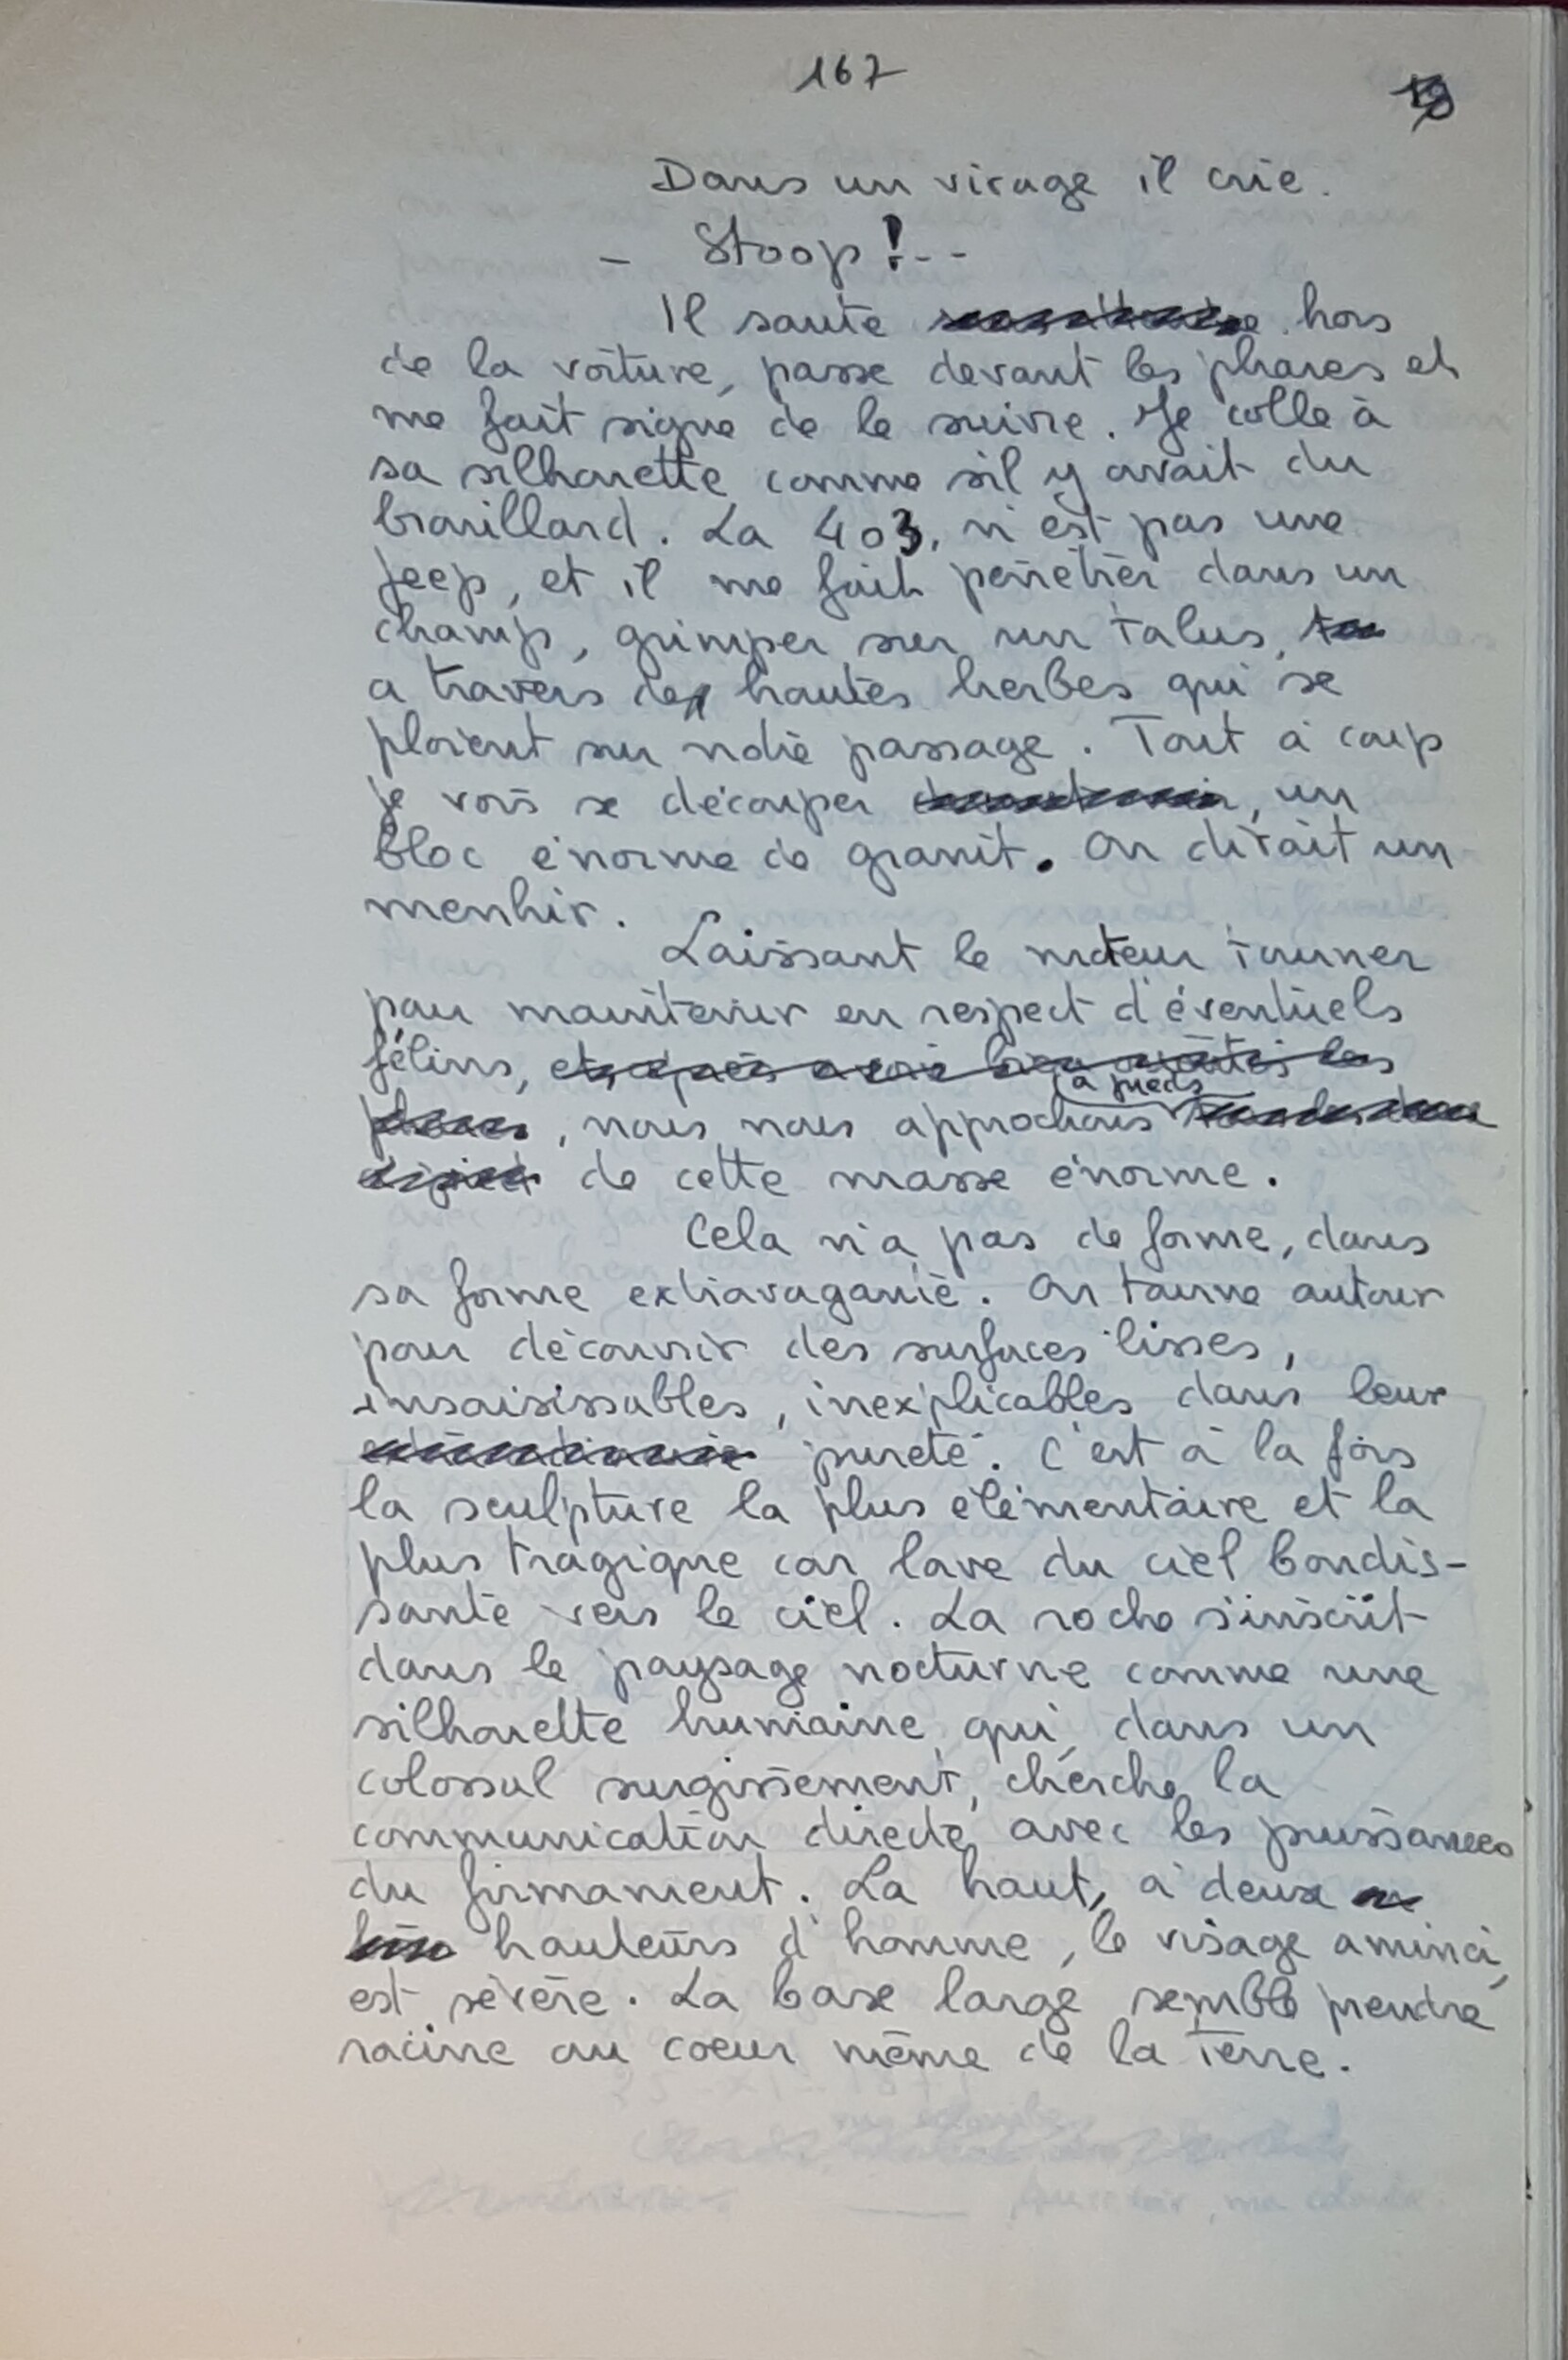 167
Dans un virage il crie.
- Stoop!--
Il saute hors
de la voiture, passe devant les phares et
me fait signe de le suivre. Je colle à
sa silhouette comme sil y avait du
brouillard. La 403, n'est pas une
jeep, et il me fait pénétrer dans un
champ, grimper sur un talus,
a travers des hautes herbes qui se
ploient sur notre passage. Tout à coup
je vois se découper, un
bloc énorme de granit. On dirait un
menhir.
Laissant le moteur tourner
pour maintenir en respect d'éventuels
félins, et, après avoir bien les
à pieds
, nous nous approchons
de cette masse énorme.
Cela n'a pas de forme, dans
sa forme extravagante. On tourne autour
pour découvrir des surfaces lisses,
insaisissables, inexplicables dans leur
pureté. C'est à la fois
la sculpture la plus élémentaire et la
plus tragique car lave du ciel bondis-
sante vers le ciel. La roche s'inscrit
dans le paysage nocturne comme une
silhouette humaine qui, dans un
colossal surgissement, cherche la
communication directe avec les puissances
du firmament. La haut, à deux
hauteurs d'homme, le visage aminci,
est sévère. La base large semble prendre
racine au coeur même de la Terre.